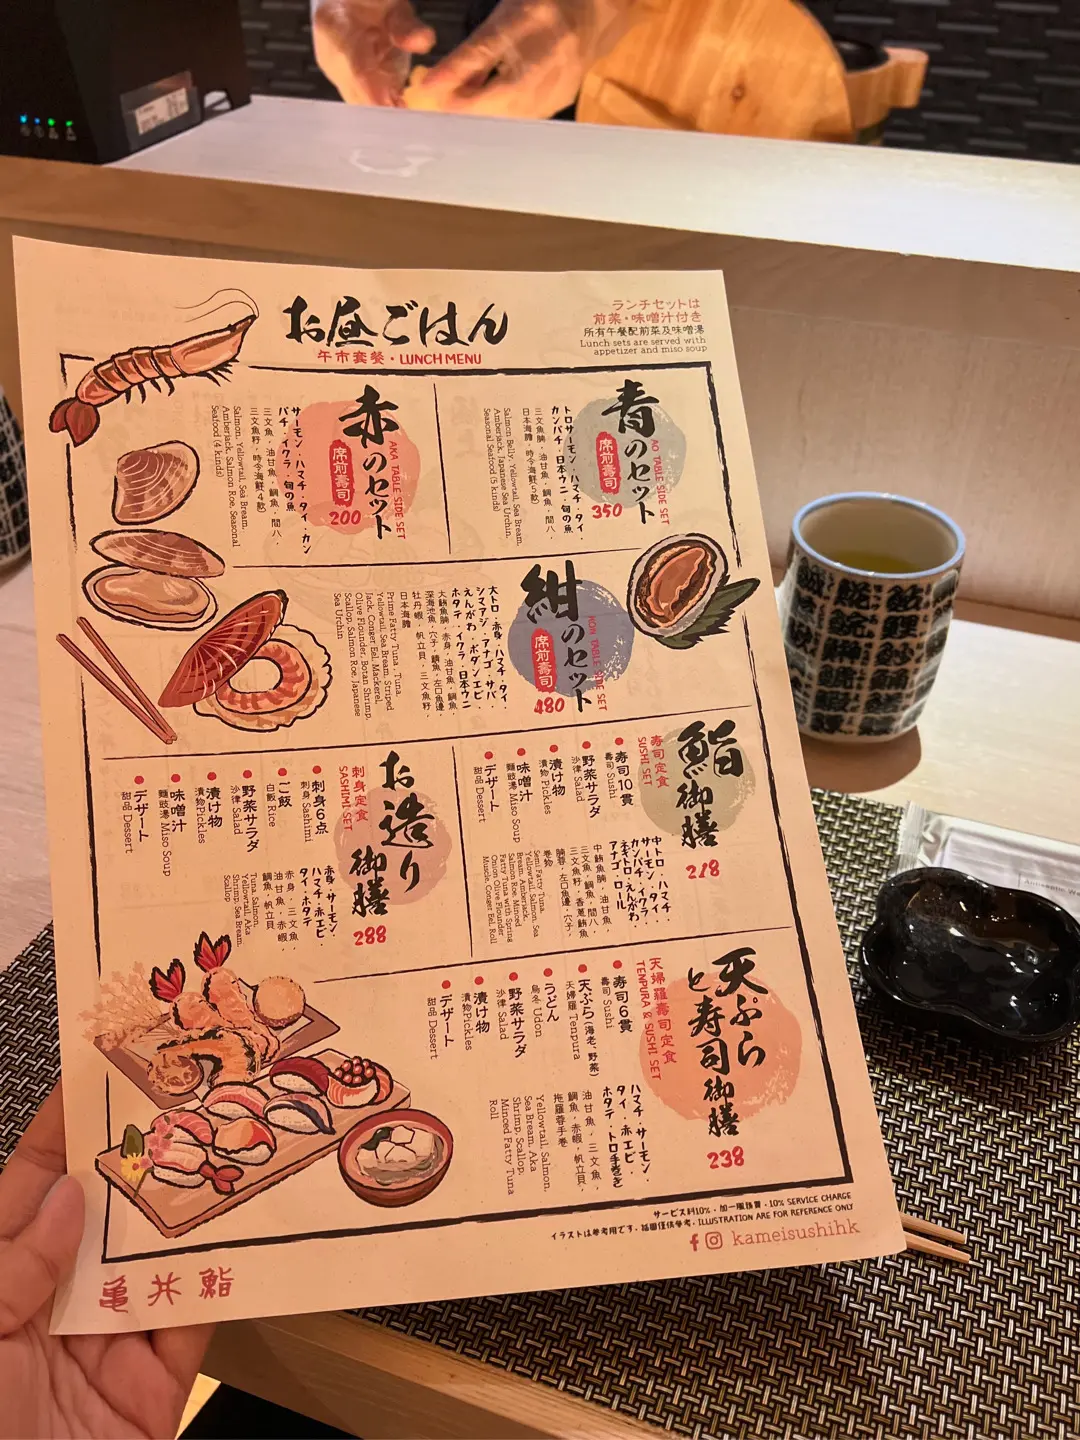 お昼ごはん
午市套餐・LUNCH MENU
ランチセットは
前菜・味噌汁付き
所有午餐配前菜及味噌湯
Lunch sets are served with
appetizer and miso soup
青のセット
AO TABLE SIDE SET
席前壽司
350
トロサーモン・ハマチ・タイ
カンパチ・日本ウニ・旬の魚
三文魚腩，油甘魚，鯛魚，間八，
日本海膽，時令海鮮(5款)
Salmon Belly, Yellowtail, Sea Bream,
Amberjack, Japanese Sea Urchin,
Seasonal Seafood (5 kinds)
赤のセット
AKA TABLE SIDE SET
席前壽司
200
サーモン・ハマチ・タイ・カン
パチ・イクラ・旬の魚
三文魚，油甘魚，鯛魚，間八，
三文魚籽，時令海鮮(4款)
Salmon, Yellowtail, Sea Bream,
Amberjack, Salmon Roe, Seasonal
Seafood (4 kinds)
紺のセット
KON TABLE SIDE SET
席前壽司
480
大トロ・赤身・ハマチ・タイ・
シマアジ・アナゴ・サバ・
えんがわ・ボタンエビ・
ホタテ・イクラ・日本ウニ
大鮪魚腩，赤身，油甘魚，鯛魚，
深海池魚，穴子，鯖魚，左口魚邊，
牡丹蝦，帆立貝，三文魚籽，
日本海膽
Prime Fatty Tuna, Tuna,
Yellowtail, Sea Bream, Striped
Jack, Conger Eel, Mackerel,
Olive Flounder, Botan Shrimp,
Scallop, Salmon Roe, Japanese
Sea Urchin
鮨御膳
寿司定食
SUSHI SET
218
寿司10貫
壽司 Sushi
野菜サラダ
沙律 Salad
漬け物
漬物 Pickles
味噌汁
麵豉湯 Miso Soup
デザート
甜品 Dessert
中トロ・ハマチ・
サーモン・タイ・
カンパチ・イクラ・
ネギトロ・えんがわ・
アナゴ・ロール
中鮪魚腩，油甘魚，
三文魚，鯛魚，間八，
三文魚籽，香蔥鮪魚
腩蓉，左口魚邊，穴子，
卷物
Semi Fatty Tuna,
Yellowtail, Salmon, Sea
Bream, Amberjack,
Salmon Roe, Minced
Fatty Tuna with Spring
Onion, Olive Flounder
Muscle, Conger Eel, Roll
お造り御膳
刺身定食
SASHIMI SET
288
刺身6点
刺身 Sashimi
ご飯
白飯 Rice
野菜サラダ
沙律 Salad
漬け物
漬物 Pickles
味噌汁
麵豉湯 Miso Soup
デザート
甜品 Dessert
赤身・サーモン・
ハマチ・赤エビ・
タイ・ホタテ
赤身，三文魚，
油甘魚，赤蝦，
鯛魚，帆立貝
Tuna, Salmon,
Yellowtail, Aka
Shrimp, Sea Bream,
Scallop
天ぷらと寿司御膳
天婦羅壽司定食
TENPURA & SUSHI SET
238
寿司6貫
壽司 Sushi
天ぷら(海老、野菜)
天婦羅 Tenpura
うどん
烏冬 Udon
野菜サラダ
沙律 Salad
漬け物
漬物 Pickles
デザート
甜品 Dessert
ハマチ・サーモン・
タイ・赤エビ・
ホタテ・トロ手まき
油甘魚，三文魚，
鯛魚，赤蝦，帆立貝，
拖羅蓉手卷
Yellowtail, Salmon,
Sea Bream, Aka
Shrimp, Scallop,
Minced Fatty Tuna
Roll
サービス料10%・加一服務費・10% SERVICE CHARGE
イラストは参考用です・插圖僅供參考・ILLUSTRATION ARE FOR REFERENCE ONLY
kameisushihk
亀井鮨